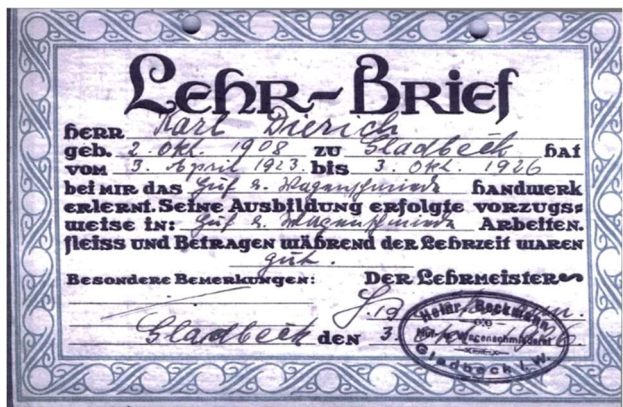 Lehr-Brief
Herr Karl Dierich
geb. 2. Okt. 1908 zu Gladbeck hat
vom 3. April 1923. bis 3. Okt. 1926
bei mir das Huf u. Wagenschmiede Handwerk
erlernt. Seine Ausbildung erfolgte vorzugs=
weise in: Huf u. Wagenschmiede Arbeiten.
Fleiss und Betragen während der Lehrzeit waren
gut.
Besondere Bemerkungen: Der Lehrmeister
Gladbeck den 3.
Heinr. Beckmann
Huf- u. Wagenschmiederei
Gladbeck i. W.